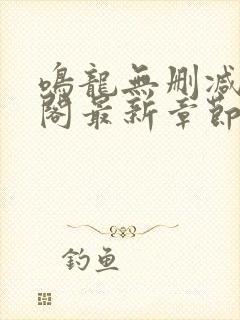 鳴龍無刪減
閣最新章節
釣魚